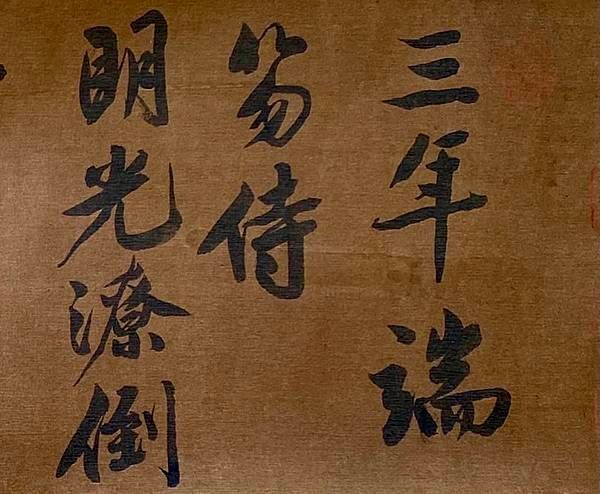 三年端
笏侍
明光潦倒